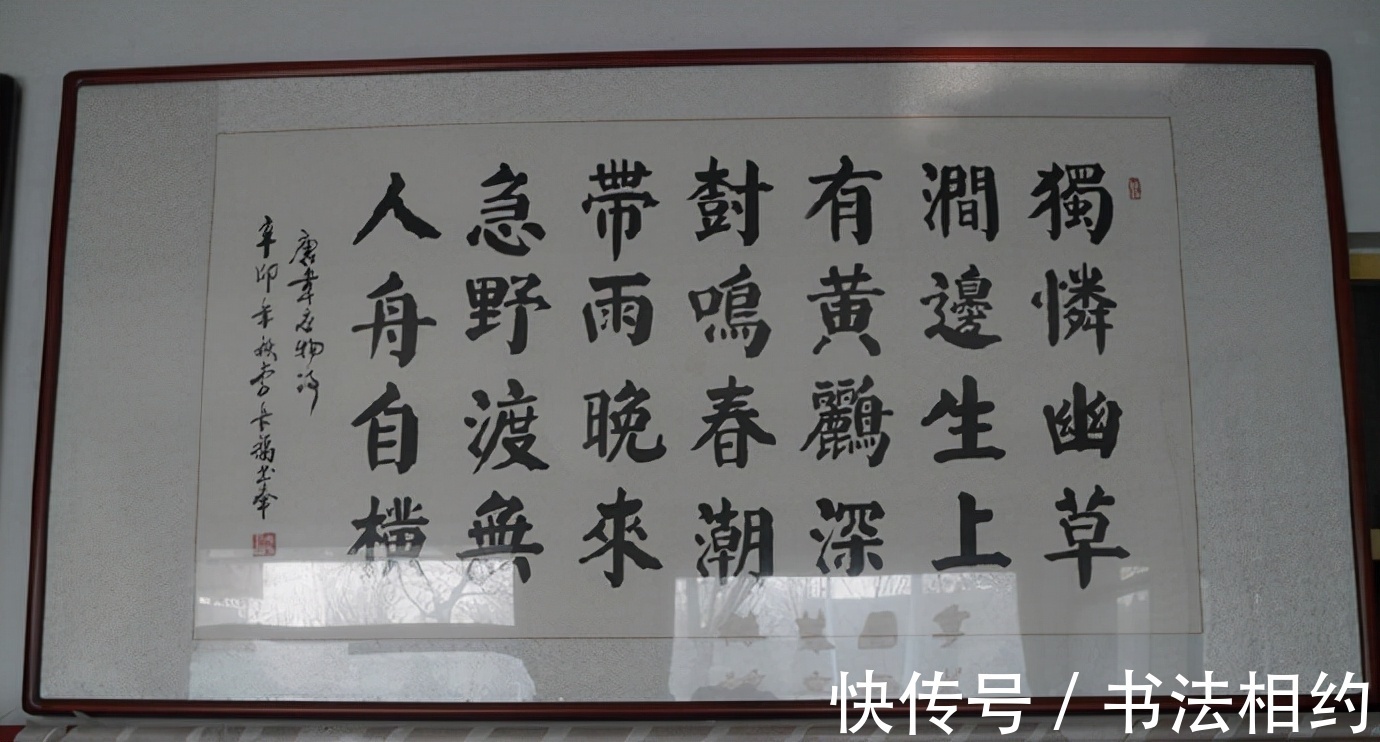 獨憐幽草
澗邊生上
有黄鸝深
尌鳴春潮
帶雨晚來
急野渡無
人舟自橫
唐韋应物诗
辛卯年秋李長福书
快传号 / 书法相约